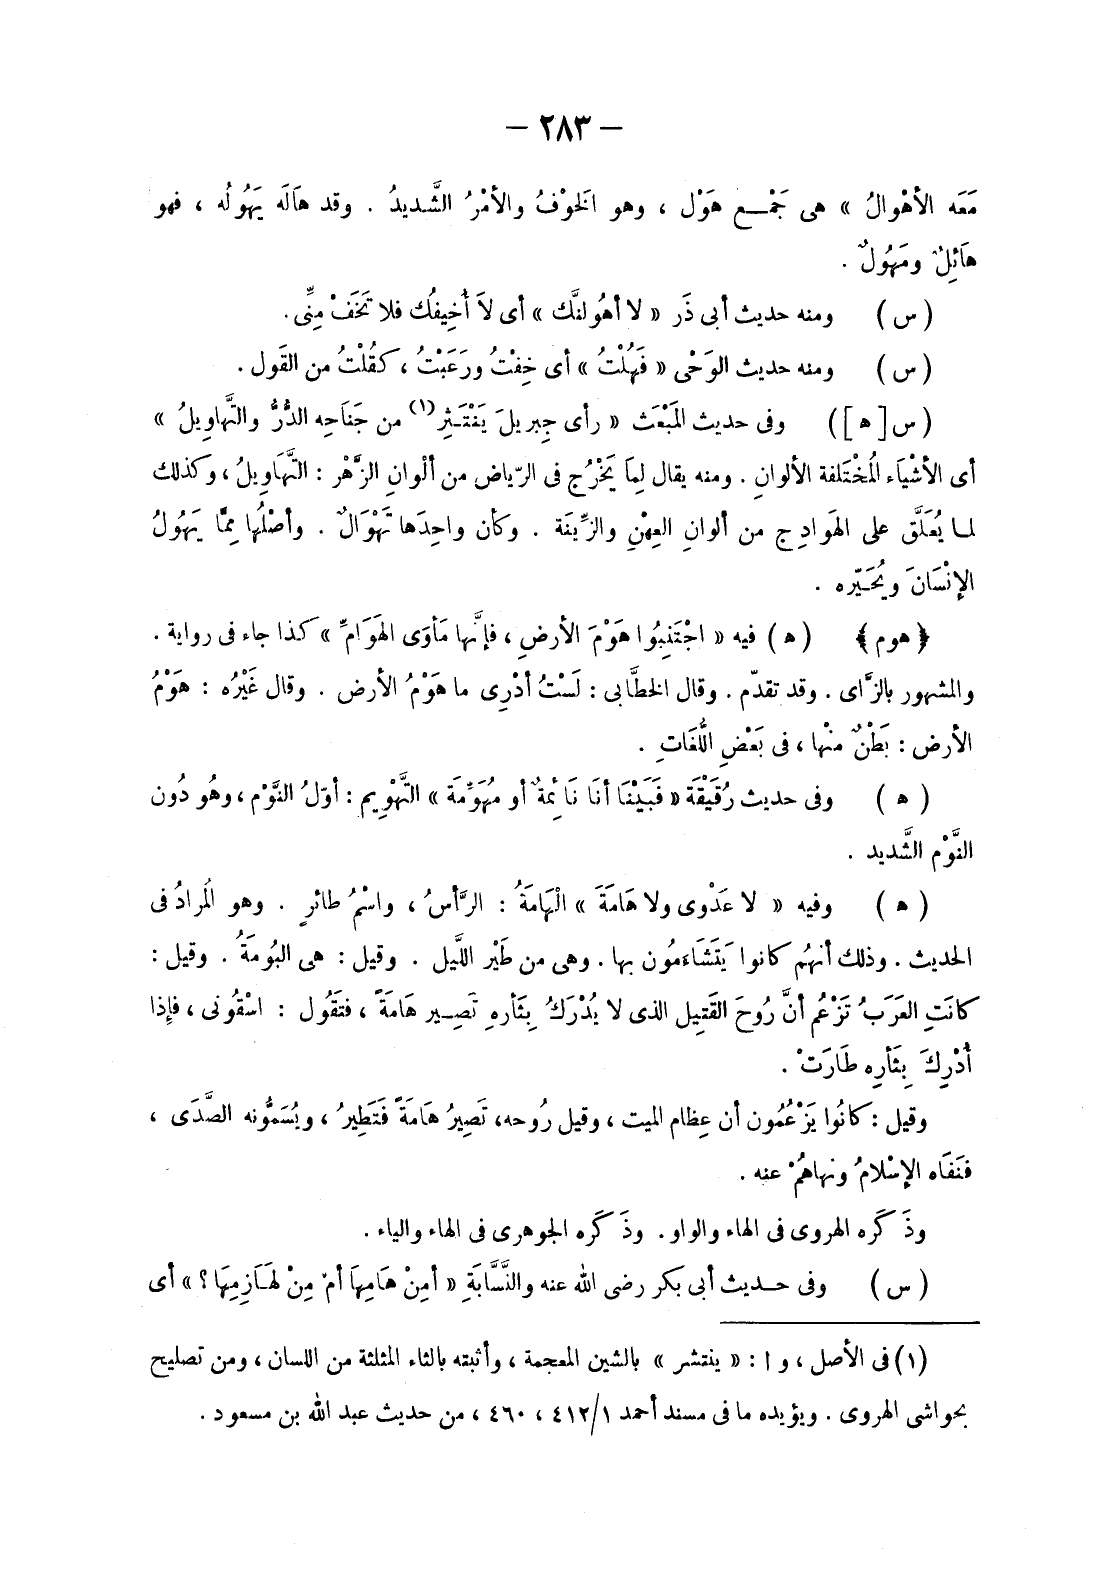 — ٢٨٣ —
مَعَه الأهْوالُ » هى جَمْع هَوْل ، وهو الخَوْفُ والأمْرُ الشَّديدُ . وقد هَالَه يَهُولُه ، فهو
هَائِلٌ ومَهُولٌ .
( س ) ومنه حديث أبى ذَر « لا أهُولنَّك » أى لاَ أُخِيفُك فلا تَخَفْ مِنِّى .
( س ) ومنه حديث الوَحْى « فَهُلْتُ » أى خِفْتُ ورَعَبْتُ ، كقُلْتُ من القَول .
( س [ ه ] ) وفى حديث المَبْعَث « رأى جِبريلَ يَنْتَثِر(١) من جَنَاحِه الدُّرُّ والتَّهاوِيلُ »
أى الأشْيَاء المُخْتَلفة الألوانِ . ومنه يقال لِمَا يَخْرُج فى الرّياض من ألْوانِ الزَّهْر : التَّهَاوِيلُ ، وكذلك
لما يُعَلَّق على الهَوادِج من ألوانِ العِهْنِ والزِّينَة . وكأن واحِدَها تَهْوَالٌ . وأصْلُها مِمَّا يَهُولُ
الإنْسَانَ ويُحَيّره .
﴿ هوم ﴾ ( ه ) فيه « اجْتَنِبُوا هَوْمَ الأرضِ ، فإنَّها مَأوَى الهَوَامِّ » كذا جاء فى رواية .
والمشهور بالزَّاى . وقد تقدّم . وقال الخطَّابى : لَسْتُ أدْرِى ما هَوْمُ الأرض . وقال غَيْرُه : هَوْمُ
الأرض : بَطْنٌ منْها ، فى بَعْضِ اللُّغَاتِ .
( ه ) وفى حديث رُقَيْقَة « فَبَيْنَا أنَا نَائمةٌ أو مُهَوِّمَة » التَّهْوِيم : أوّلُ النَّوْم ، وهُو دُون
النَّوْم الشَّديد .
( ه ) وفيه « لا عَدْوى ولا هَامَةَ » الْهَامَةُ : الرَّأسُ ، واسْمُ طائرٍ . وهو المُرادُ فى
الحديث . وذلك أنهُم كانوا يَتَشَاءمُون بها . وهى من طَيْر اللَّيل . وقيل : هى البُومَةُ . وقيل :
كانَتِ العَرَبُ تَزْعُم أنَّ رُوحَ القَتِيل الذى لا يُدْرَكُ بِثَأرهِ تَصِير هَامَةً ، فتَقُول : اسْقُونى ، فإذا
أُدْرِكَ بِثَأرِه طَارَتْ .
وقيل : كانُوا يَزْعُمُون أن عِظام الميت ، وقيل رُوحه، تَصِيرُ هَامَةً فَتَطِيرُ ، ويُسَمُّونه الصَّدَى ،
فنَفَاه الإسْلامُ ونهاهُمْ عنه .
وذَكَره الهروى فى الهاء والواو . وذَكَره الجوهرى فى الهاء والياء .
( س ) وفى حديث أبى بكر رضى الله عنه والنَّسَّابَةِ « أمِنْ هَامِهَا أمْ مِنْ لَهَازِمِهَا ؟ » أى
(١) فى الأصل ، و ا : « ينتشر » بالشين المعجمة ، وأثبته بالثاء المثلثة من اللسان ، ومن تصليح
بحواشى الهروى . ويؤيده ما فى مسند أحمد ٤١٢/١ ، ٤٦٠ ، من حديث عبد الله بن مسعود .